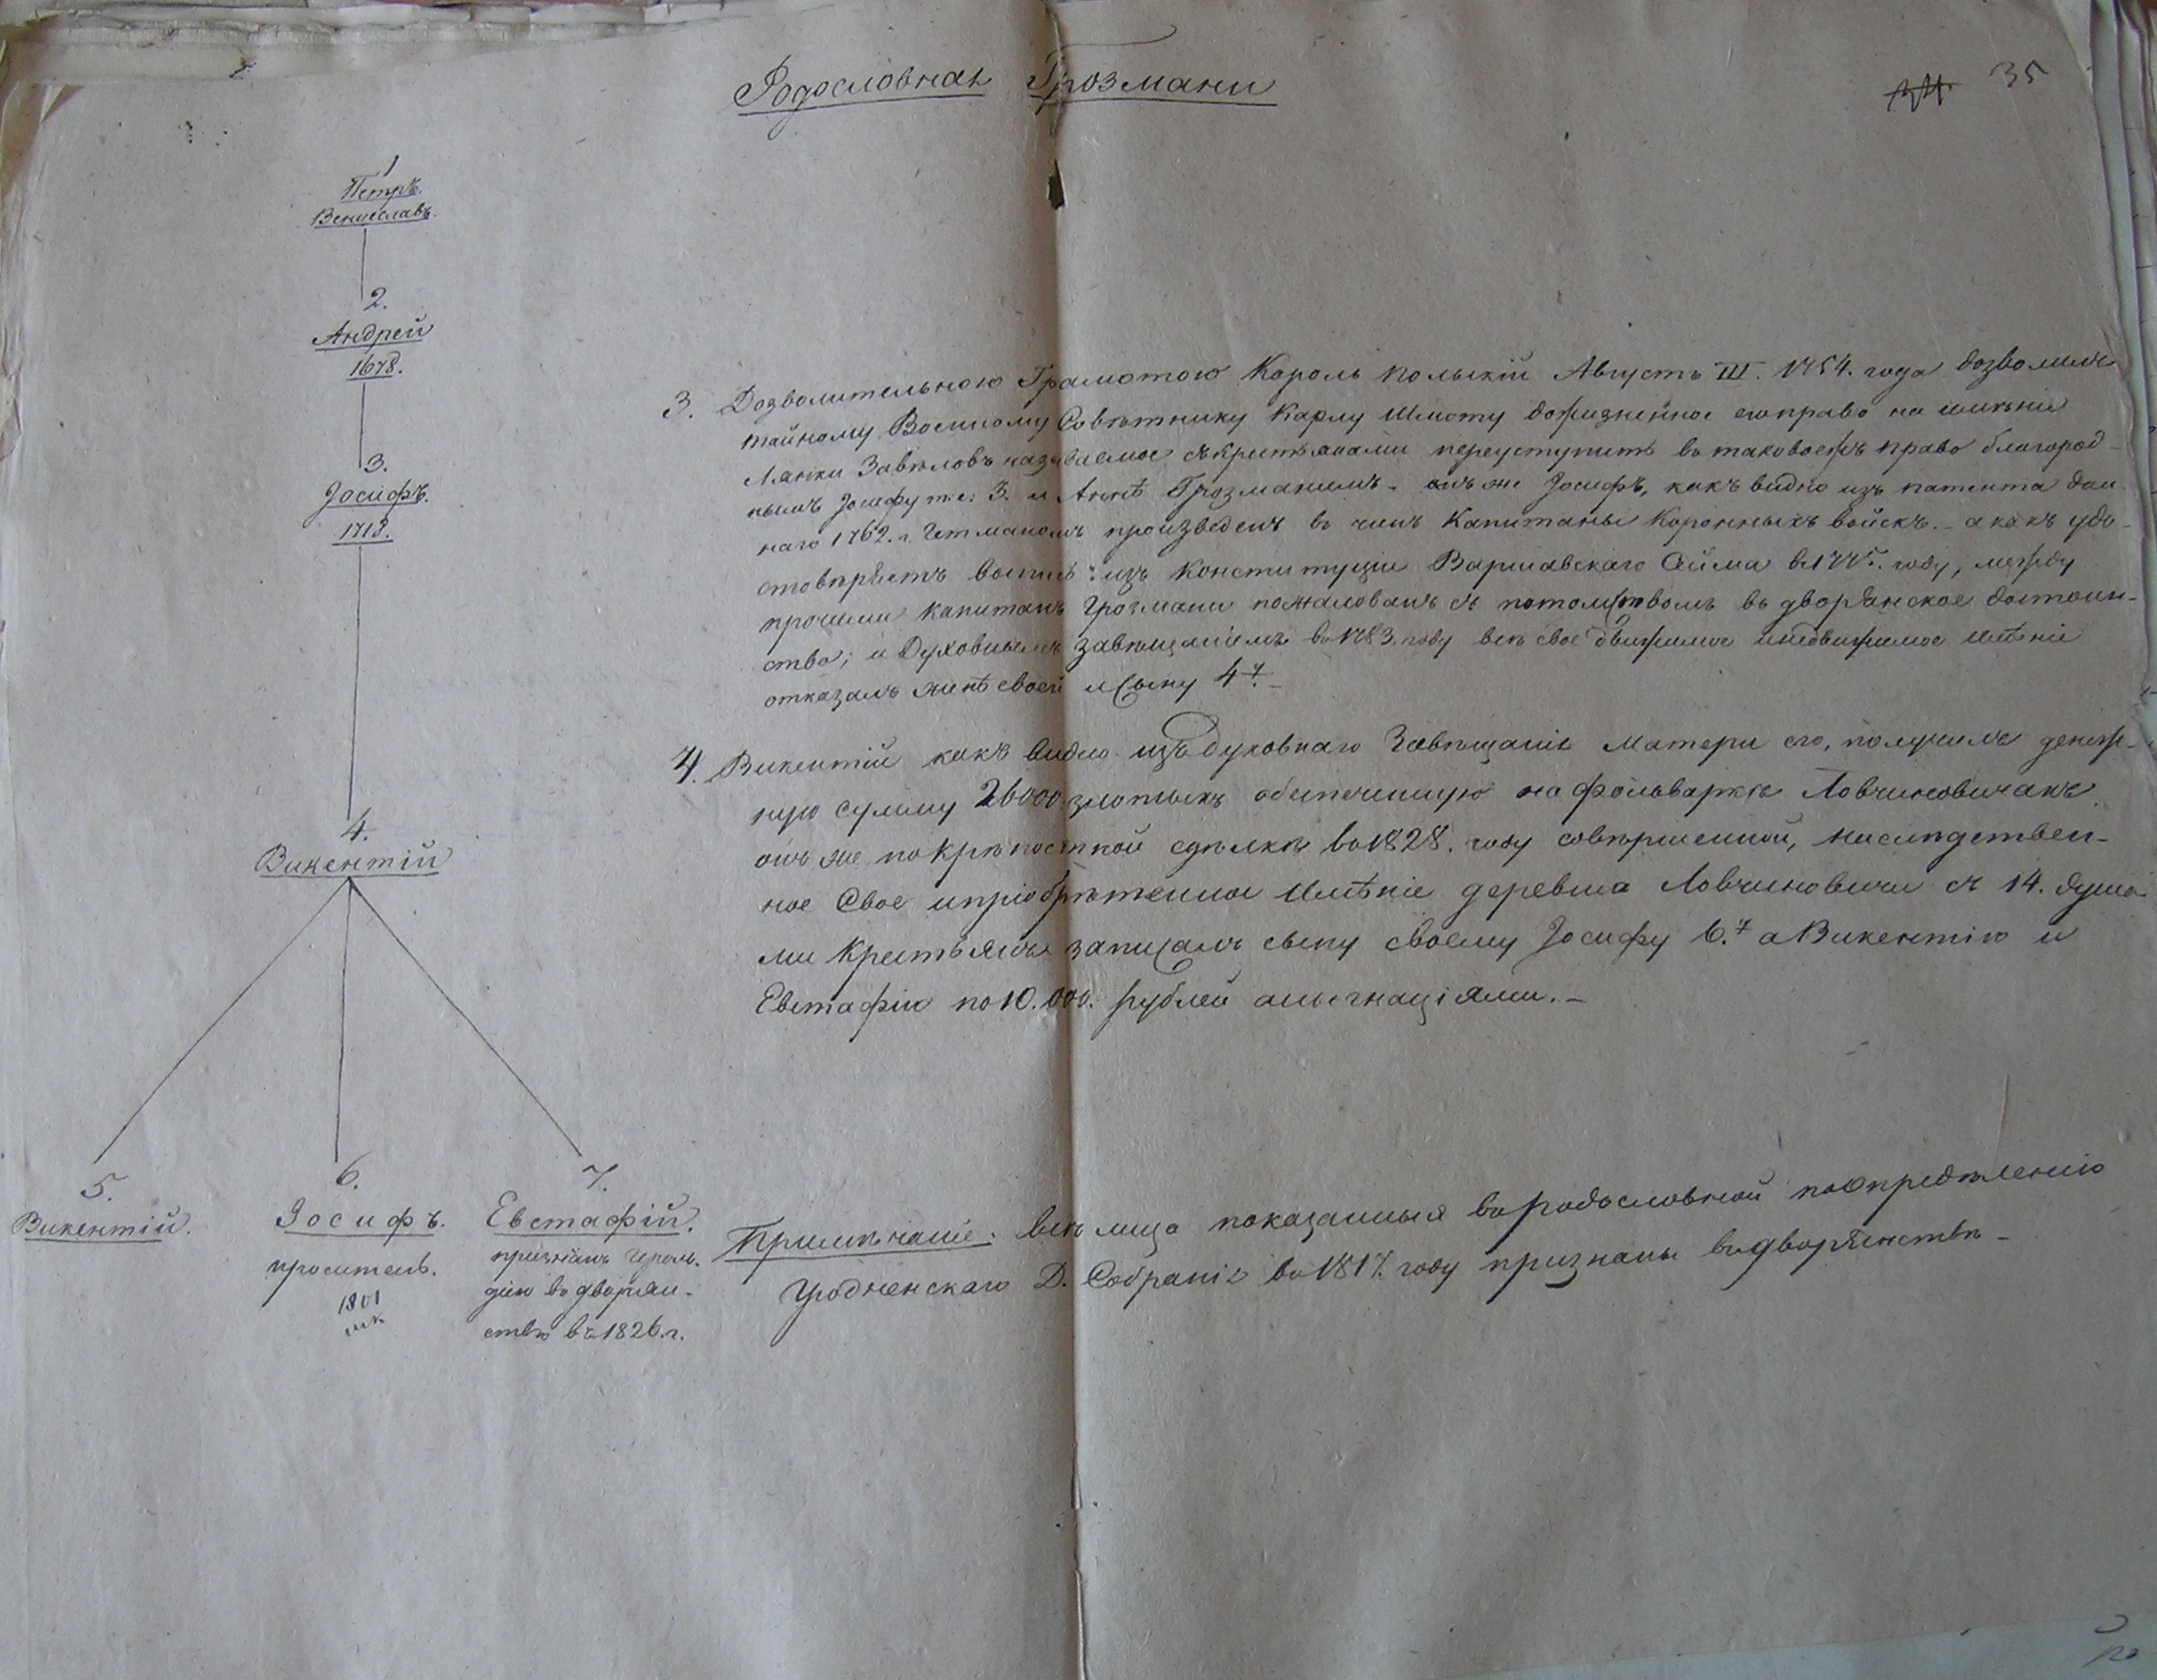 Родословная Грозмани
34. 35
1
Петръ
Венцеславъ.
2.
Андрей
1678.
3.
Іосифъ.
1713.
4.
Викентій
5.
Викентій.
6.
Іосифъ.
проситель.
1801
7.
Евстафій.
признанъ Героль-
діею въ дворян-
ствѣ въ 1826. г.
3. Дозволительною Грамотою Король Польскій Августъ III. 1754. года дозволилъ
тайному Военному Совѣтнику Карлу Шмоту дожизненное его право на имѣніе
Лянки Завѣловъ называемое съ крестьянами переуступить въ таковоежъ право благород-
нымъ Іосифу т: е: 3. и Аннѣ Грозманимъ. онъ же Іосифъ, какъ видно изъ патента дан-
наго 1762. г. Гетманомъ произведенъ въ чинъ Капитаны Коронныхъ войскъ. – а какъ удо-
стовѣряетъ выпись изъ Конституціи Варшавскаго Сейма въ 1775. году, между
прочими Капитанъ Грозмани пожалованъ съ потомствомъ въ дворянское достоин-
ство; и Духовнымъ завѣщаніемъ въ 1783. году все свое движимое и недвижимое имѣніе
отказалъ женѣ своей и Сыну 4.у –
4. Викентій какъ видно изъ духовнаго Завѣщанія Матери его, получилъ денеж-
ную сумму 26000 злотыхъ обезпеченную на фольваркѣ Ловчиновичахъ
онъ же по крѣпостной сдѣлкѣ въ 1828. году совѣршенной, наслѣдствен-
ное Свое и пріобрѣтенное Имѣніе деревня Ловчиновичи съ 14. душа-
ми Крестьянъ записалъ сыну своему Іосифу 6.у а Викентію и
Евстафію по 10.000. рублей ассигнаціями. –
Примѣчаніе. Всѣ лица показанныя въ родословной по опредѣленію
Гродненскаго Д. Собранія въ 1817. году признаны въ дворянствѣ –